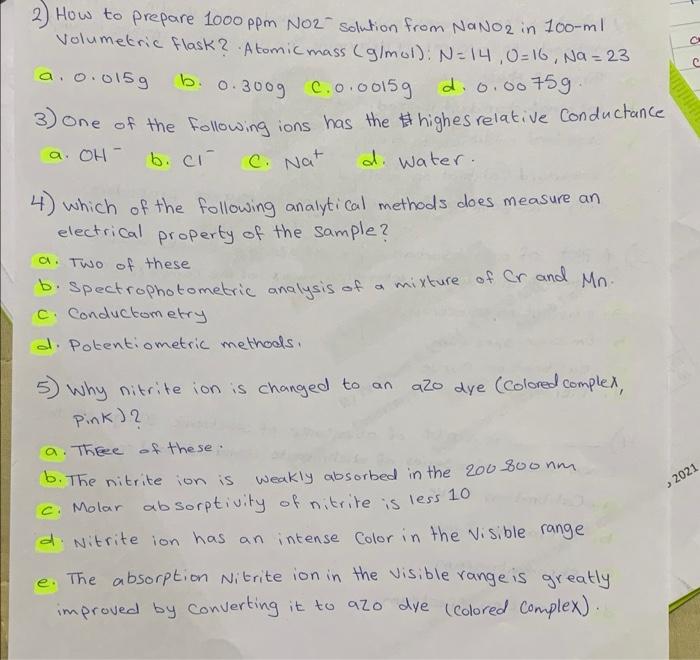 2) How to prepare 1000 ppm NO2⁻ solution from NaNO2 in 100-ml
Volumetric flask? Atomic mass (g/mol): N=14, O=16, Na=23
a. 0.015g b. 0.300g c. 0.0015g d. 0.0075g.
3) One of the following ions has the highes relative Conductance
a. OH⁻ b. Cl⁻ c. Na⁺ d. water.
4) which of the following analytical methods does measure an
electrical property of the sample?
a. Two of these
b. Spectrophotometric analysis of a mixture of Cr and Mn.
c. Conductometry
d. Potentiometric methods.
5) Why nitrite ion is changed to an azo dye (Colored complex,
Pink)?
a. Three of these.
b. The nitrite ion is weakly absorbed in the 200-800 nm
c. Molar absorptivity of nitrite is less 10
d. Nitrite ion has an intense Color in the Visible range
e. The absorption Nitrite ion in the Visible range is greatly
improved by Converting it to azo dye (Colored Complex).
, 2021